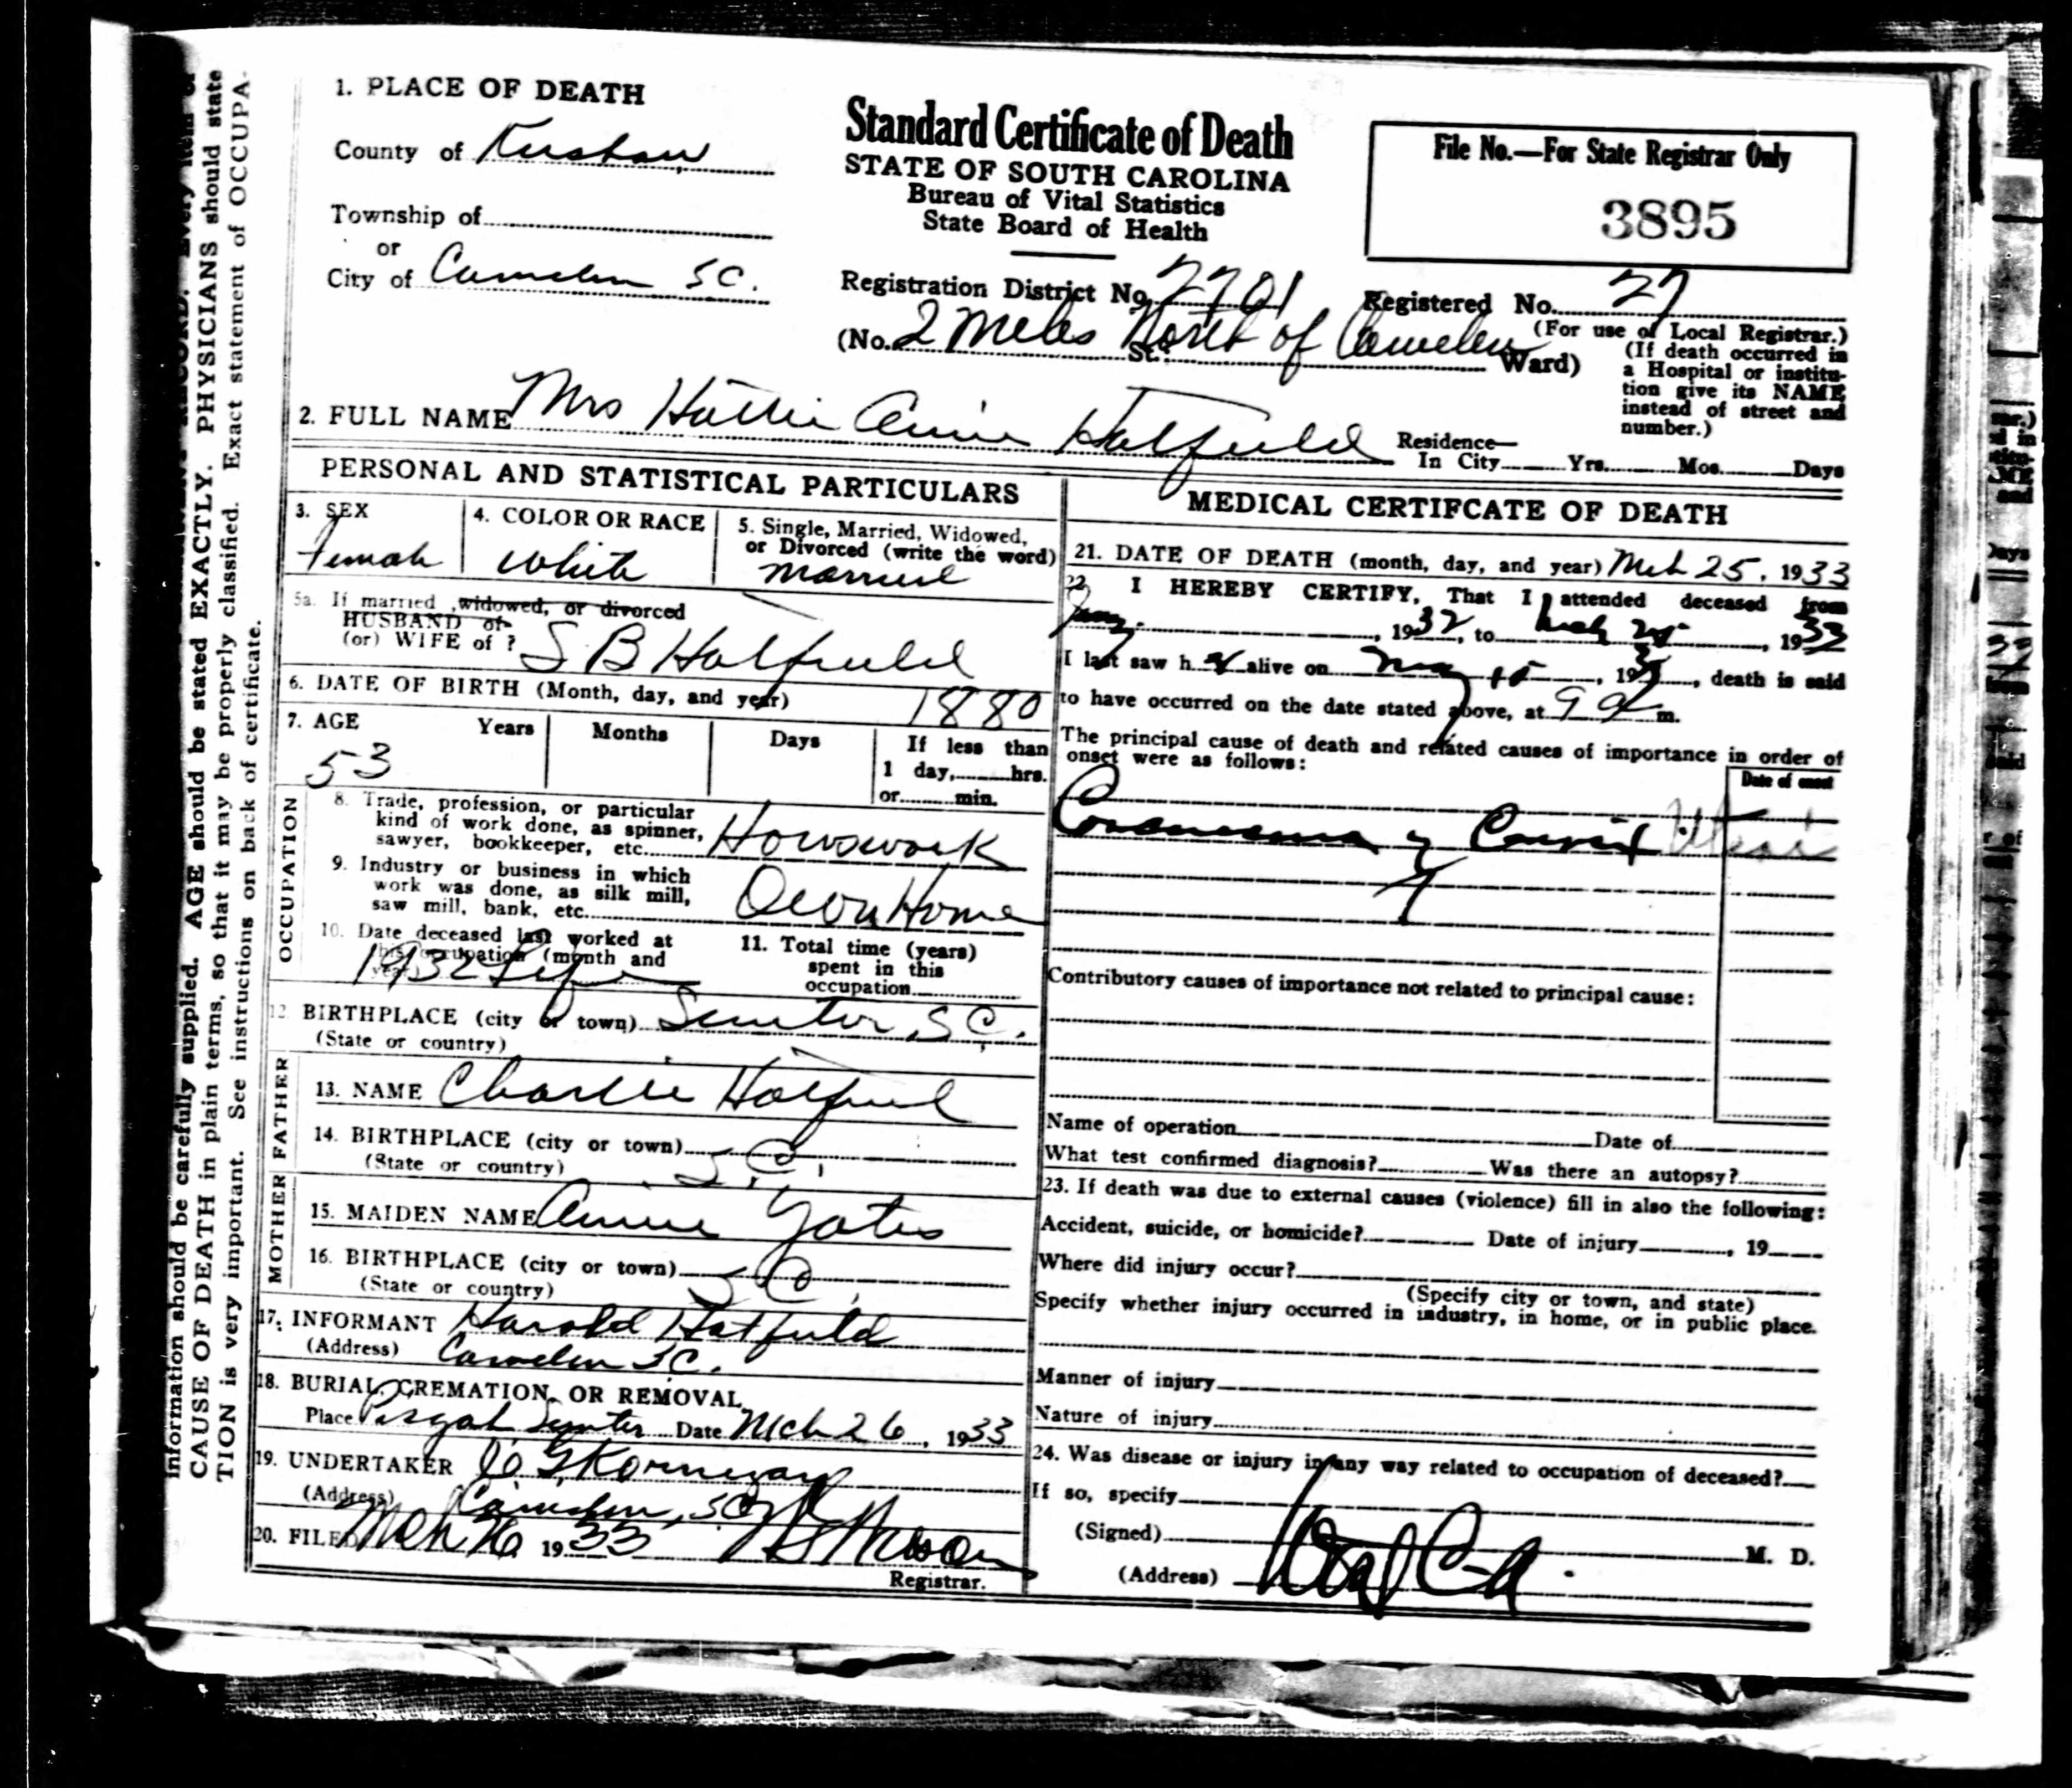 1. PLACE OF DEATH
County of Kershaw
Township of
or
City of Camden SC.
Standard Certificate of Death
STATE OF SOUTH CAROLINA
Bureau of Vital Statistics
State Board of Health
File No.—For State Registrar Only
3895
Registration District No. 2701
Registered No. 27
(For use of Local Registrar.)
(No. 2 Miles North of Camden St. Ward)
(If death occurred in
a Hospital or institu-
tion give its NAME
instead of street and
number.)
2. FULL NAME Mrs Hattie Annie Hatfield
Residence—
In City Yrs. Mos. Days
PERSONAL AND STATISTICAL PARTICULARS
3. SEX
Female
4. COLOR OR RACE
White
5. Single, Married, Widowed,
or Divorced (write the word)
Married
5a. If married, widowed, or divorced
HUSBAND of
(or) WIFE of ? S B Hatfield
6. DATE OF BIRTH (Month, day, and year) 1880
7. AGE Years Months Days If less than
53 1 day, hrs.
or min.
OCCUPATION
8. Trade, profession, or particular
kind of work done, as spinner,
sawyer, bookkeeper, etc. Housework
9. Industry or business in which
work was done, as silk mill,
saw mill, bank, etc. Own Home
10. Date deceased last worked at
this occupation (month and
year) 1932 Life
11. Total time (years)
spent in this
occupation
12 BIRTHPLACE (city or town) Sumter, S C.
(State or country)
FATHER
13. NAME Charlie Hatfield
14. BIRTHPLACE (city or town) S. C.
(State or country)
MOTHER
15. MAIDEN NAME Annie Yates
16. BIRTHPLACE (city or town) S C.
(State or country)
17. INFORMANT Harold Hatfield
(Address) Camden S C.
18. BURIAL, CREMATION, OR REMOVAL
Place Pisgah Sumter Date Mch 26, 1933
19. UNDERTAKER G Kornegay
(Address) Camden, SC
20. FILED Mch 26 1933
Registrar.
MEDICAL CERTIFCATE OF DEATH
21. DATE OF DEATH (month, day, and year) Mch 25, 1933
22 I HEREBY CERTIFY, That I attended deceased from
, 1932, to Mch 25, 1933
I last saw h er alive on , 19 , death is said
to have occurred on the date stated above, at 9 a m.
The principal cause of death and related causes of importance in order of
onset were as follows:
Date of onset
Carcinoma of Cervix Uteri
Contributory causes of importance not related to principal cause:
Name of operation Date of
What test confirmed diagnosis? Was there an autopsy?
23. If death was due to external causes (violence) fill in also the following:
Accident, suicide, or homicide? Date of injury , 19
Where did injury occur?
(Specify city or town, and state)
Specify whether injury occurred in industry, in home, or in public place.
Manner of injury
Nature of injury
24. Was disease or injury in any way related to occupation of deceased?
If so, specify
(Signed) M. D.
(Address)
information should be carefully supplied. AGE should be stated EXACTLY. PHYSICIANS should state
CAUSE OF DEATH in plain terms, so that it may be properly classified. Exact statement of OCCUPA-
TION is very important. See instructions on back of certificate.